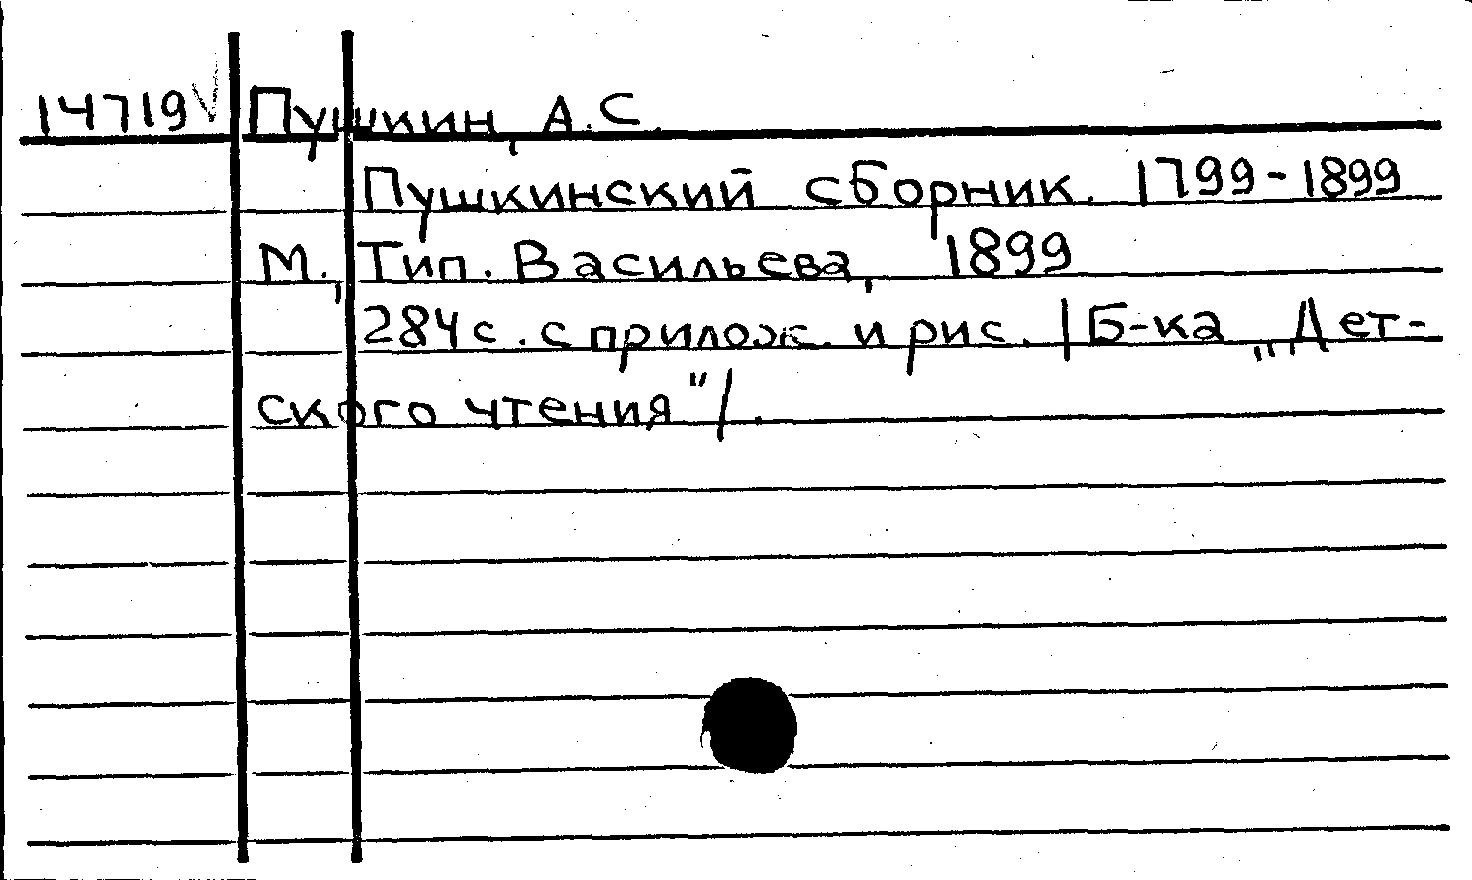 14719 V Пушкин, А.С.
Пушкинский сборник. 1799-1899
М., Тип. Васильева, 1899
284 с. с прилож. и рис. /Б-ка „Дет-
ского чтения"/.